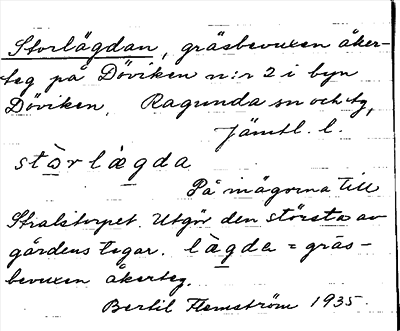 Storlägdan, gräsbevuxen åker-
teg på Döviken n:r 2 i byn
Döviken, Ragunda sn och tg,
Jämtl. l.
stòrlàgda
På inägorna till
Stralstorpet. Utgör den största av
gårdens tegar. làgda = gräs-
bevuxen åkerteg.
Bertil Flemström 1935.